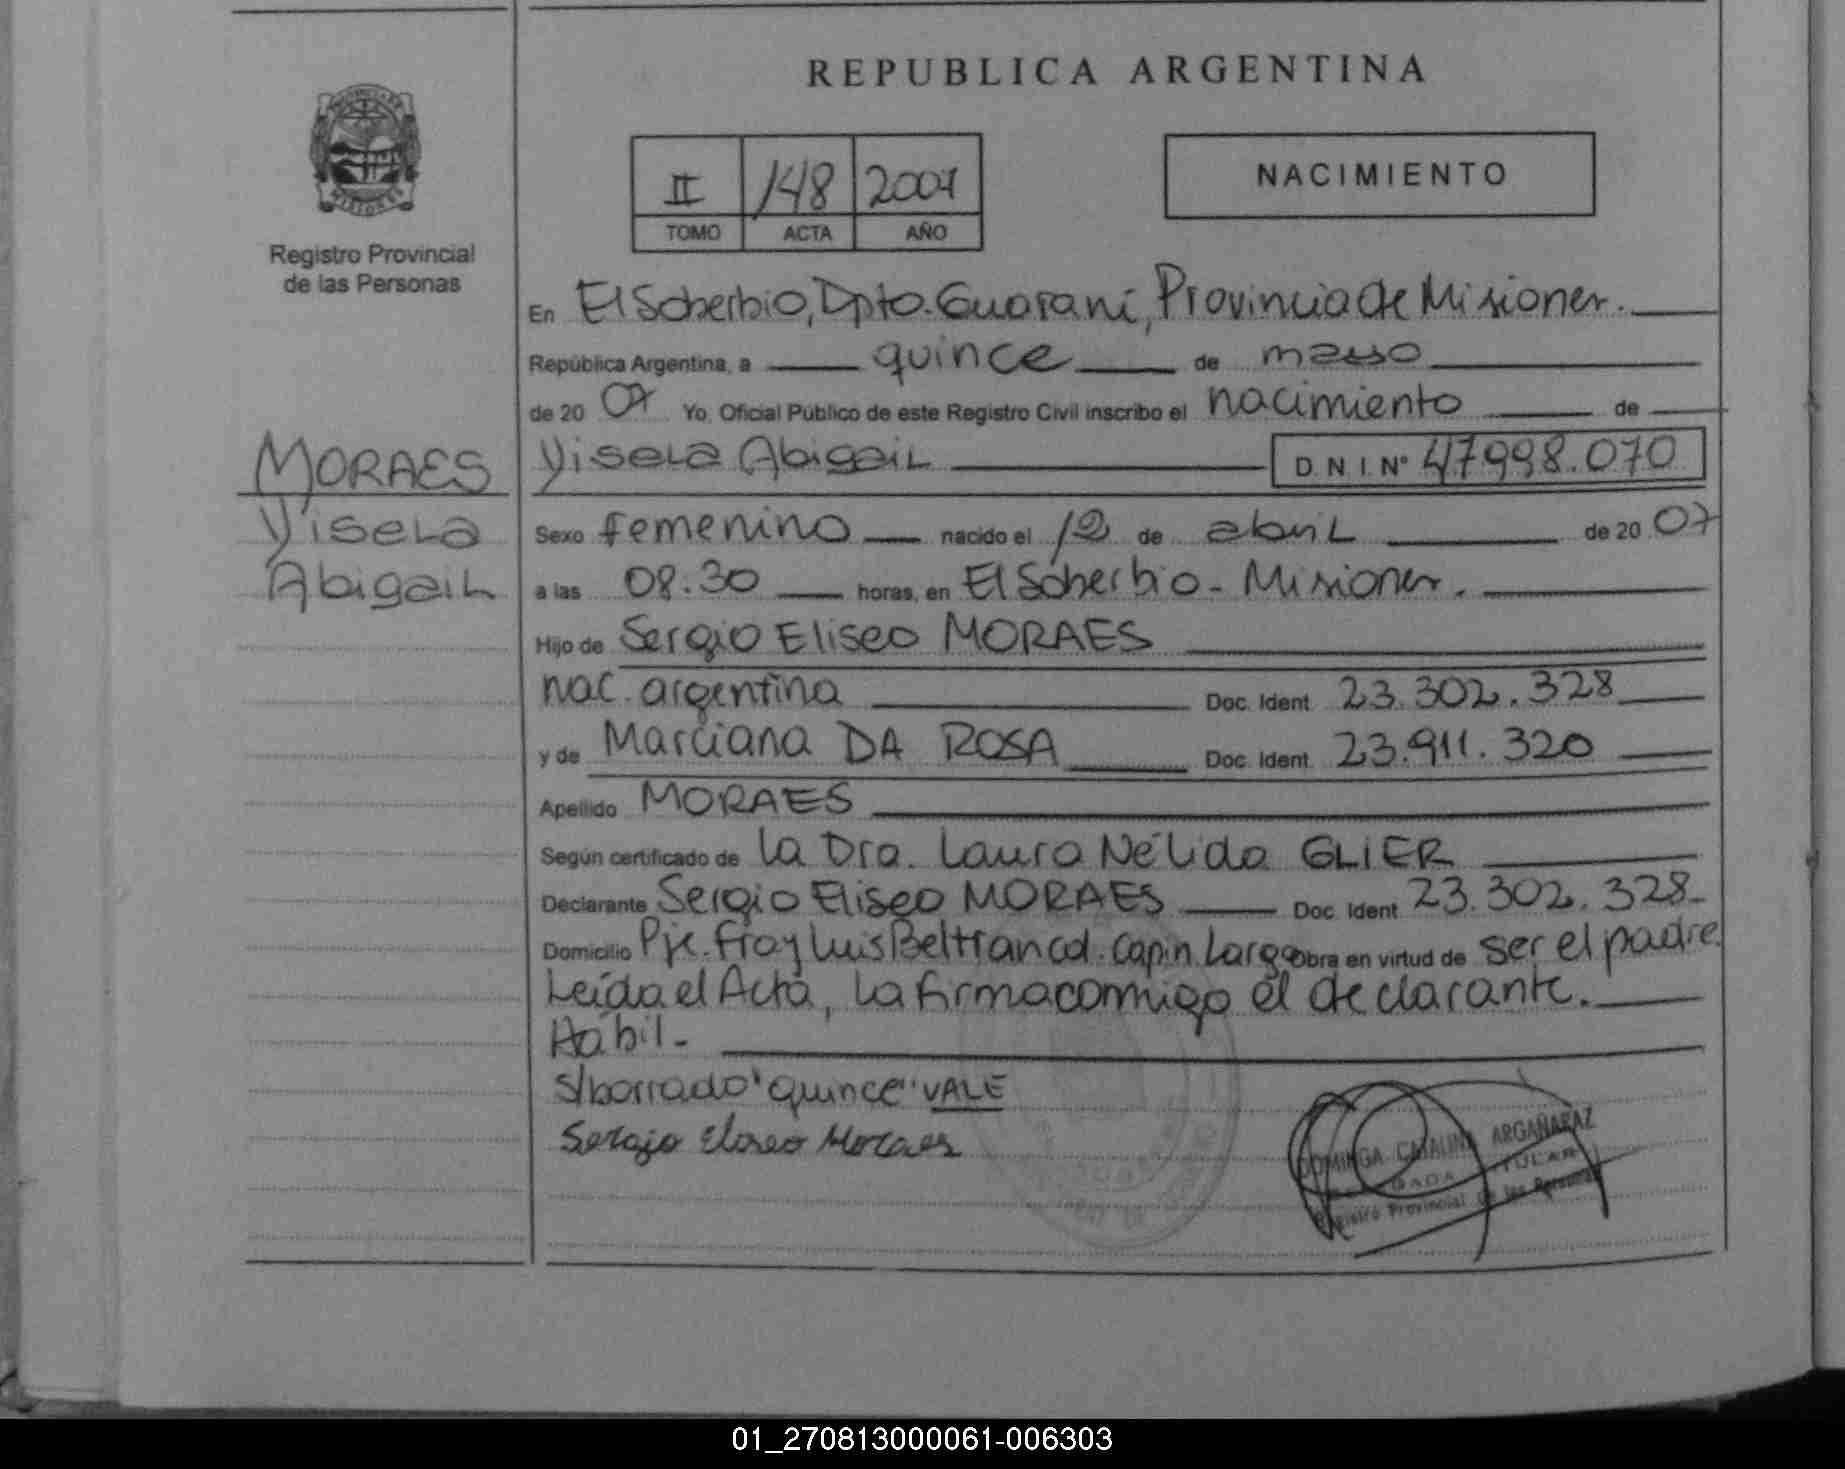 REPUBLICA ARGENTINA
PROVINCIA DE
MISIONES
Registro Provincial
de las Personas
II 148 2007
TOMO ACTA AÑO
NACIMIENTO
En El Soberbio, Dpto. Guaraní, Provincia de Misiones.
República Argentina, a quince de mayo
de 20 07 Yo, Oficial Público de este Registro Civil inscribo el nacimiento de
Yisela Abigail D.N.I. N° 47998.070
MORAES
Yisela
Abigail
Sexo femenino nacido el 12 de abril de 20 07
a las 08.30 horas, en El Soberbio - Misiones.
Hijo de Sergio Eliseo MORAES
nac. argentina Doc. Ident. 23.302.328
y de Marciana DA ROSA Doc. Ident. 23.911.320
Apellido MORAES
Según certificado de la Dra. Laura Nélida GLIER
Declarante Sergio Eliseo MORAES Doc. Ident. 23.302.328-
Domicilio Pje. Fray Luis Beltran cd. Capin Largo Obra en virtud de ser el padre.
Leída el Acta, la firma conmigo el declarante.
Hábil-
S/borrado "quince" VALE
Sergio Eliseo Moraes
DOMINGA CATALINA ARGAÑARAZ
TITULAR
Registro Provincial de las Personas
01_270813000061-006303